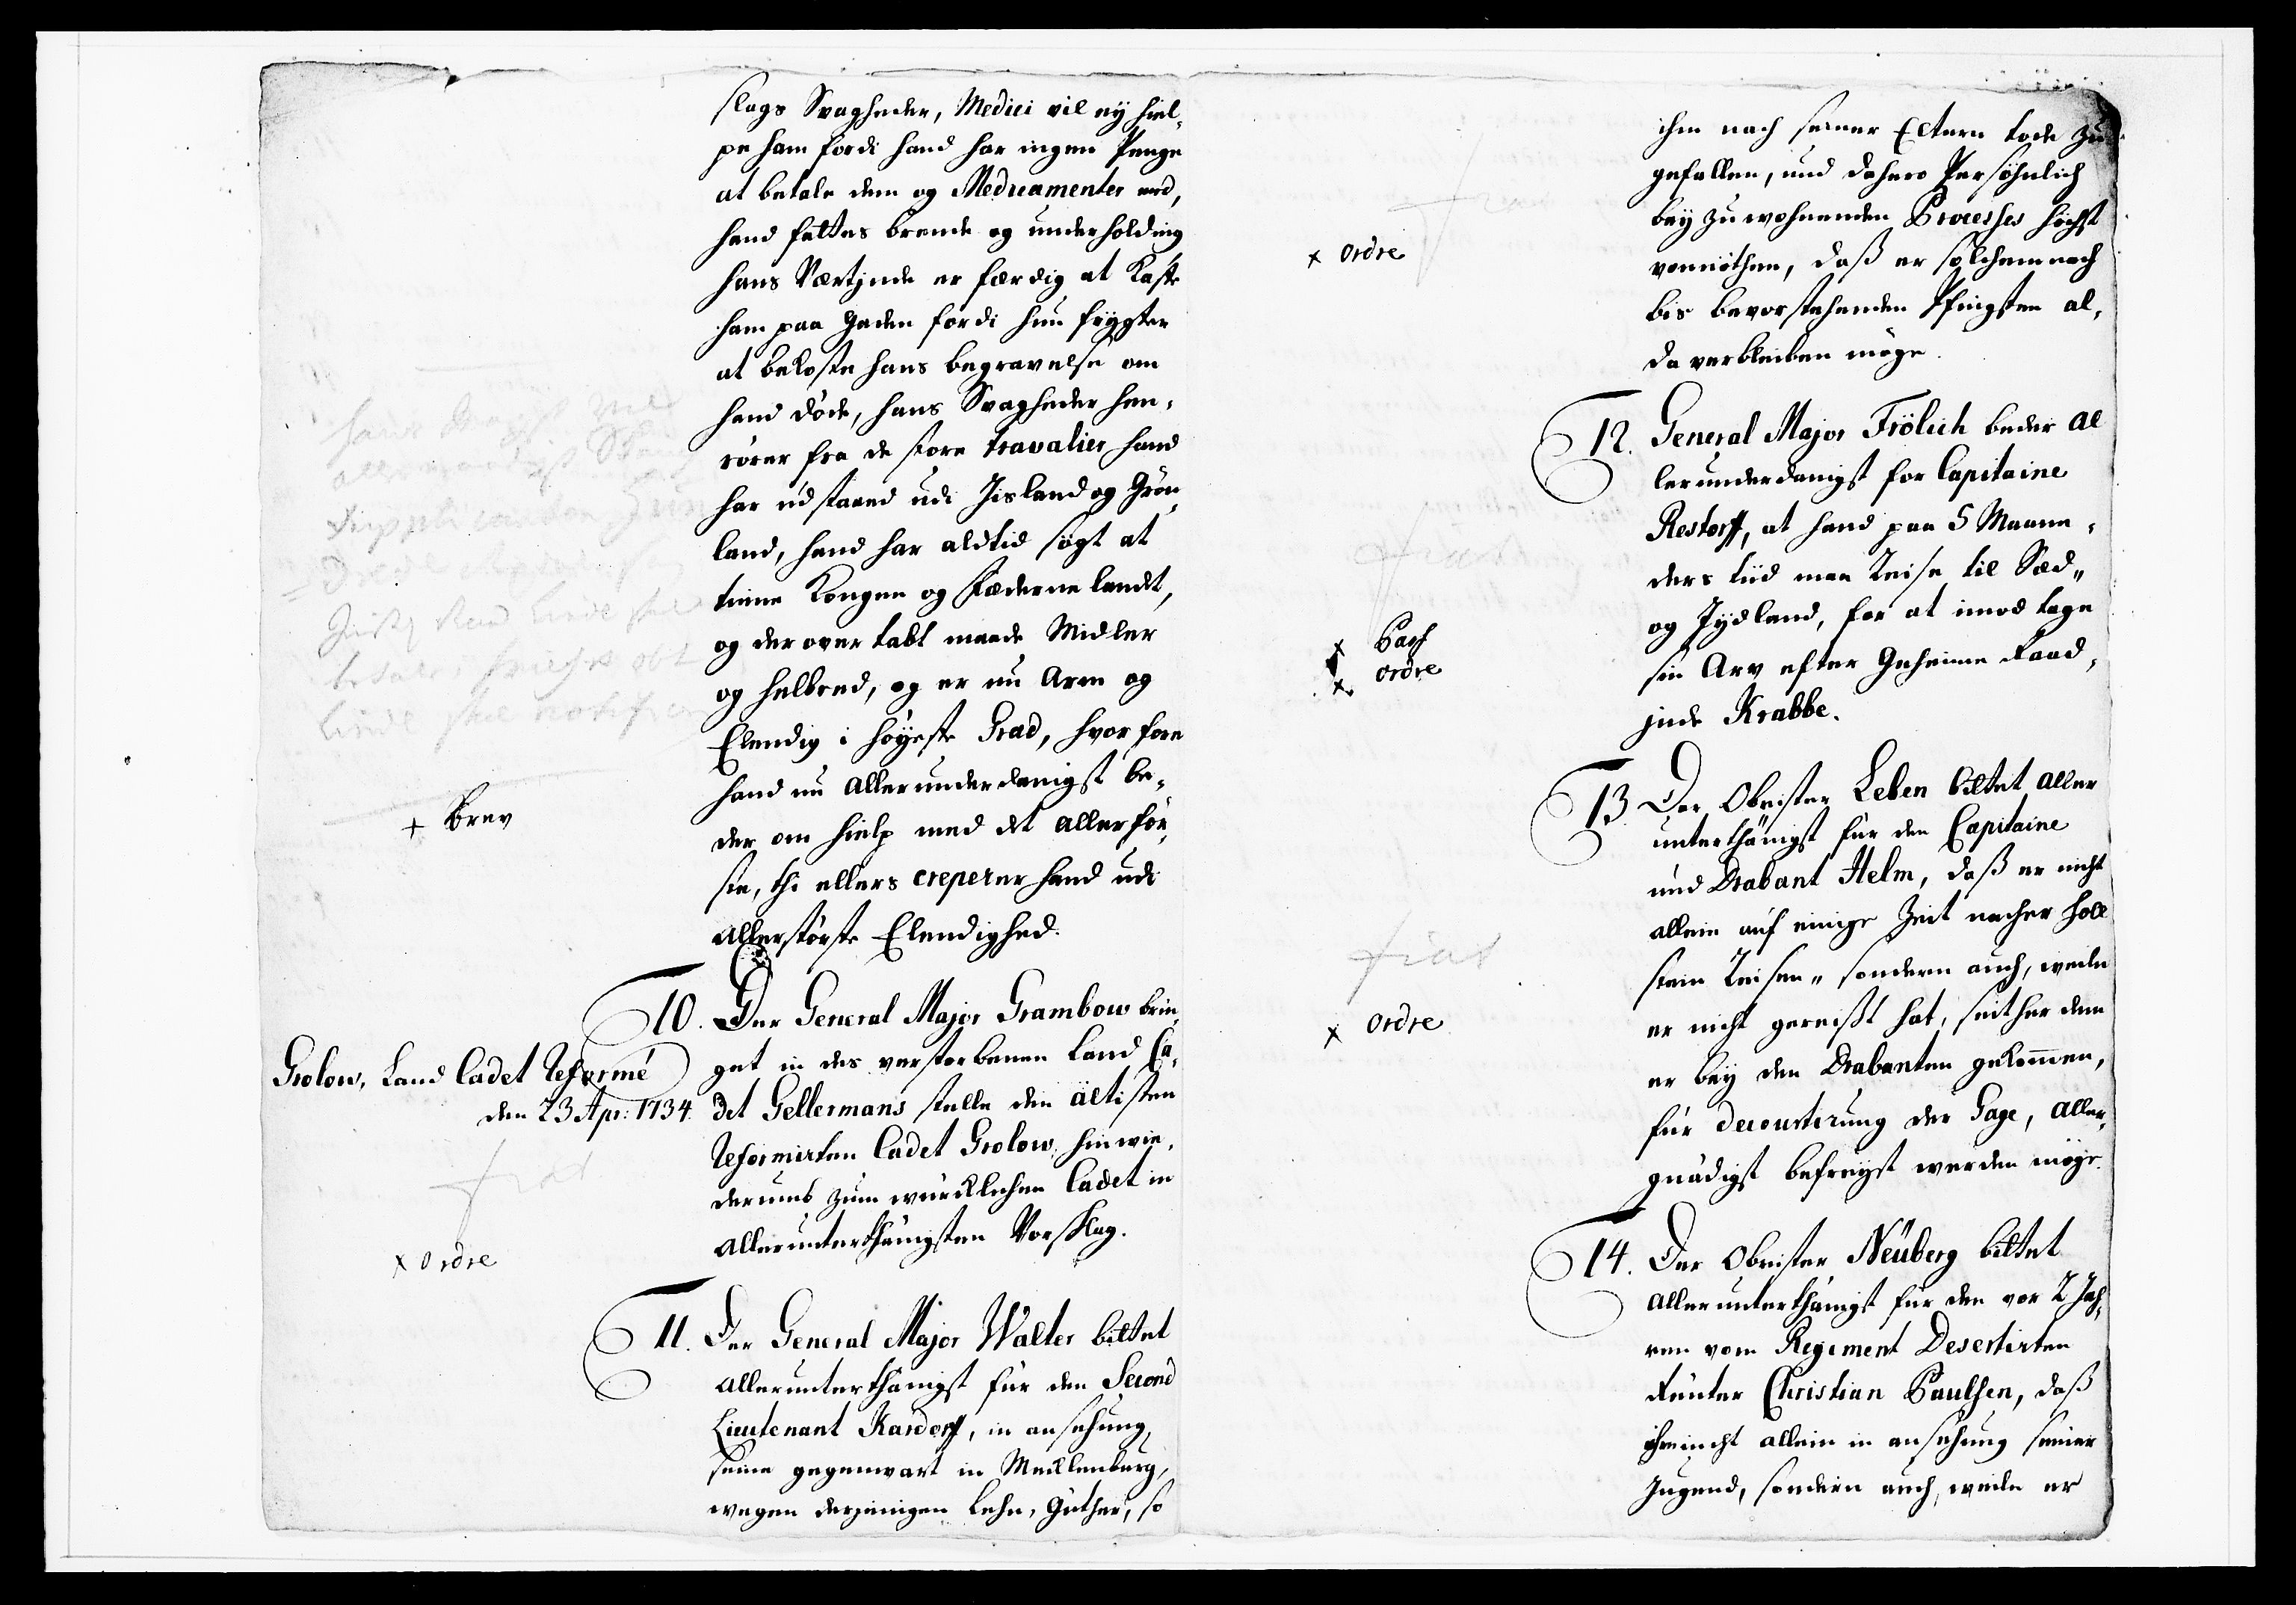 slags Svagheder, Medici vil ey hiel-
pe ham fordi hand har ingen Penge
at betale dem og Medicamenter med,
hand fattes brende og underholding
hans Værtinde er færdig at kaste
ham paa Gaden fordi hun frygter
at bekoste hans begravelse om
hand døde, hans Svagheder hen-
rører fra de store travalier hand
har udstaaed udi Jisland og Grøn-
land, hand har aldtid søgt at
tiene Kongen og Fæderne landet,
og der over tabt maade Midler
og helbred, og er nu Arm og
Elendig i høyeste Grad, hvorfore
hand nu allerunderdanigst be-
der om hielp med det allerfør-
ste, thi ellers creperer hand udi
allerstørste Elendighed.
+ Brev
10. Der General Major Grambow brin-
get in des verstorbenen Land Ca-
det Gellermans stelle den ältisten
Reformirten Cadet Grolow, hinwie-
derumb zum würcklichen Cadet in
allerunterthänigsten Vorschlag.
Grolow, Land Cadet Reformé
den 23 Apr: 1734.
fiat
x ordre
11. Der General Major Walter bittet
allerunterthänigst für den Second
Lieutenant Kardorff, in ansehung,
seine gegenwart in Mecklenburg,
wegen derjenigen Lehn-Güther, so
ihm nach seiner Eltern tode zu-
gefallen, und dahero Persöhnlich
bey zu wohnenden Processes höchst
vonnöthen, daß er solchemnach
bis bevorstehenden Pfingsten al-
da verbleiben möge.
fiat
x ordre
12. General Major Frölich beder al
lerunderdanigst for Capitaine
Restorff, at hand paa 5 Maane-
ders tiid maa Reise til Sæd-
og Jydland, for at imod tage
sin Arv efter Geheime Raad-
inde Krabbe.
fiat
x Pass
x ordre
13. Der Obrister Leben bittet aller
unterthänigst für den Capitaine
und Drabant Helm, daß er nicht
allein auf einige Zeit nacher Holl
stein Reisen, sondern auch, weile
er nicht gereißt hat, seither dem
er bey den Drabanten gekommen,
für decourtirung der Gage, aller-
gnädigst befreyet werden möge.
fiat
x ordre
14. Der Obrister Neüberg bittet
allerunterthänigst für den vor 2 Jah-
ren vom Regiment Desertirten
Reuter Christian Paulsen, daß
ihm nicht allein in ansehung seiner
Jugend, sondern auch, weile er